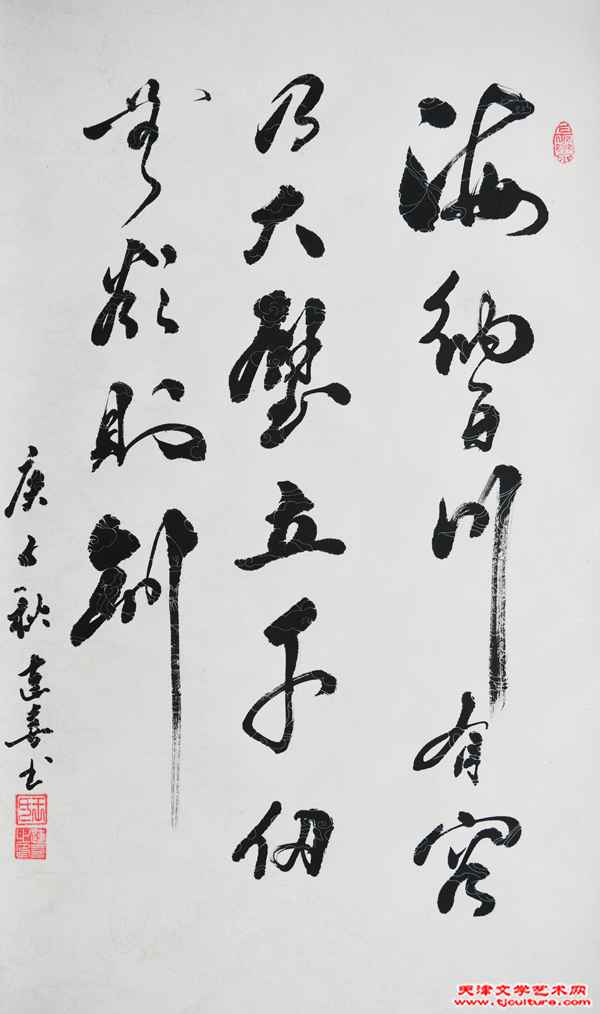 海納百川有容
乃大壁立千仞
無欲則剛
庚子秋喜书
天津文学艺术网
www.tjculture.com